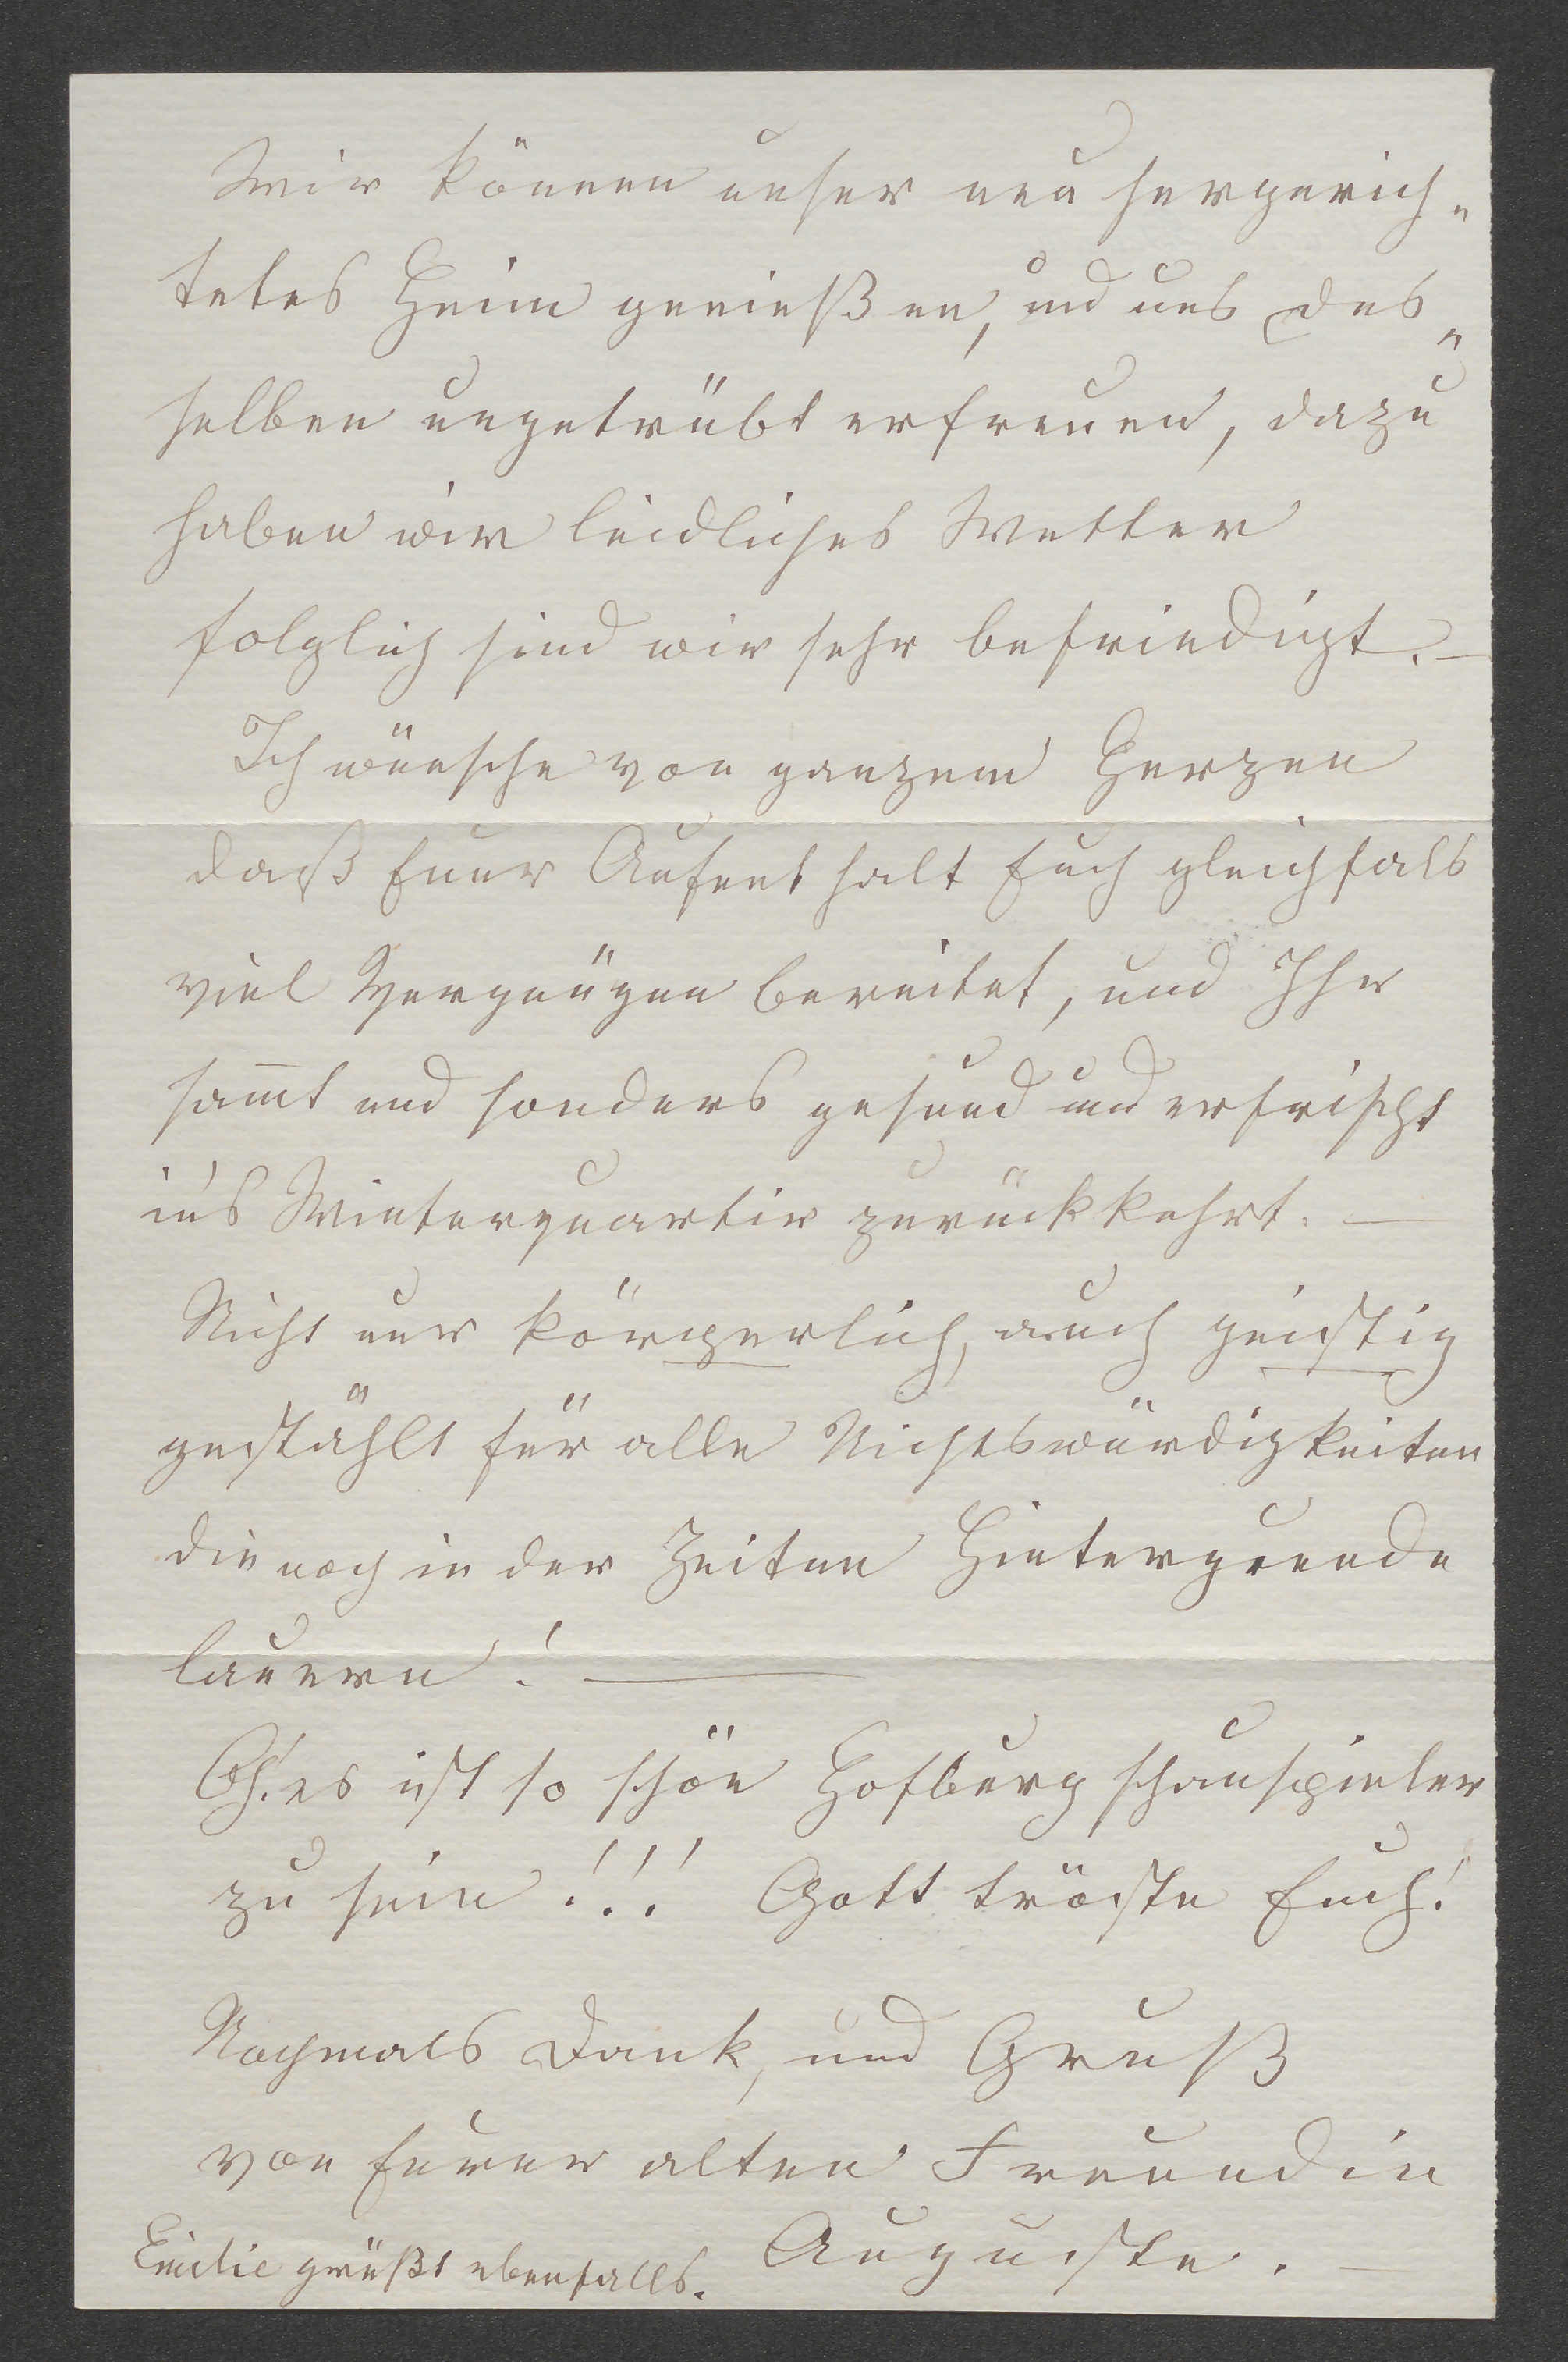 Wir können unser neu hergerich„
tetes Heim genießen, und uns des„
selben ungetrübt erfreuen, dazu
haben wir leidliches Wetter
folglich sind wir sehr befriedigt. —
Ich wünsche von ganzem Herzen
daß Euer Aufenthalt Euch gleichfals
viel Vergnügen bereitet, und Ihr
sam̄t und sonders gesund und erfrischt
in's Winterquartir zurückkehrt. —
Nicht nur körperlich, auch geistig
gestählt für alle Nichtswürdigkeiten
die noch in der Zeiten Hintergrunde
lauern! —
Oh! es ist so schön Hofburgschauspieler
zu sein!!! Gott tröste Euch!
Nochmals Dank, und Gruß
von Eurer alten Freundin
Auguste. —
Emilie grüßt ebenfalls.